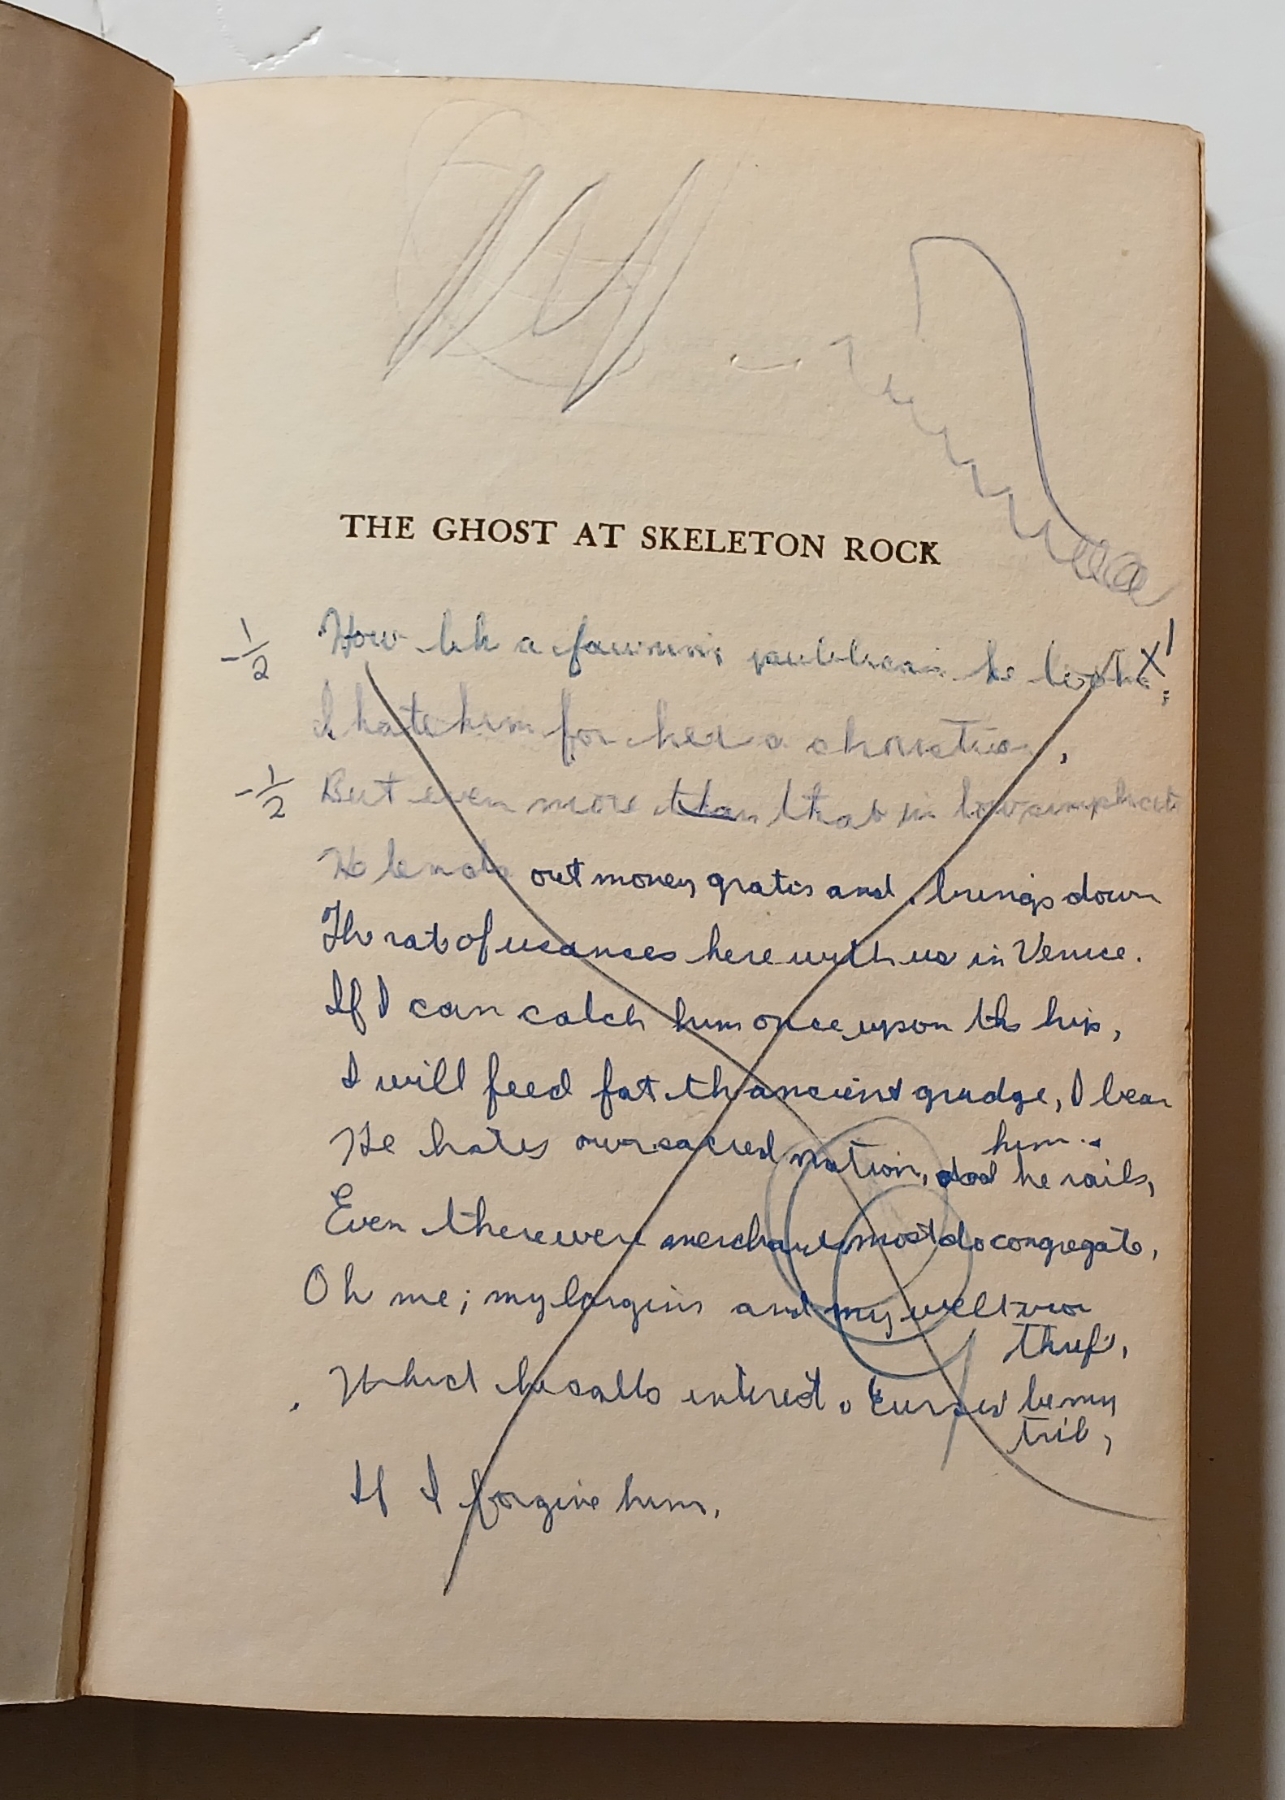 THE GHOST AT SKELETON ROCK
-1/2 How lik a fawning publican he looks X!
I hate him for he is a christian,
-1/2 But even more than that in low simplicit
He lends out money gratis and brings down
The rate of usances here with us in Venice.
If I can catch him once upon the hip,
I will feed fat th ancient grudge, I bear
him.
He hates our sacred nation, and he rails,
Even there were merchants most do congregate,
Oh me; my bargins and my well won
thrift,
Which he calls intrest. Cursed be my
trib,
If I forgive him.